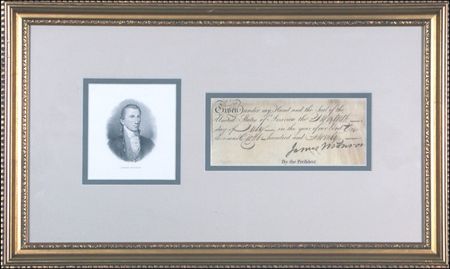 JAMES MONROE
Given under my Hand and the Seal of the
United States of America the
day of July in the year of our Lord
thousand Eight hundred and
James Monroe
By the President